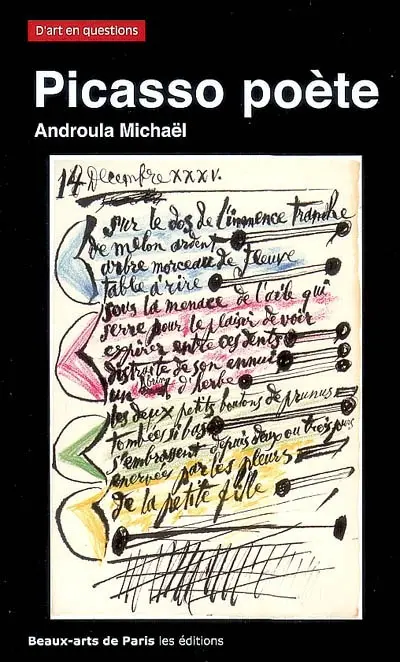 D'art en questions
Picasso poète
Androula Michaël
14 Decembre XXXV.
sur le dos de l'immence tranche
de melon ardent
arbre morceau de fleuve
table à rire
sous la menace de l'aile qui
serre pour le plaisir de voir
expirer entre ces dents
distraite de son ennui
un brin d'herbe
les deux petits boutons de prunus
tombées si bas
s'embrassent depuis deux ou trois jours
enervées par les pleurs
de la petite fille
Beaux-arts de Paris les éditions